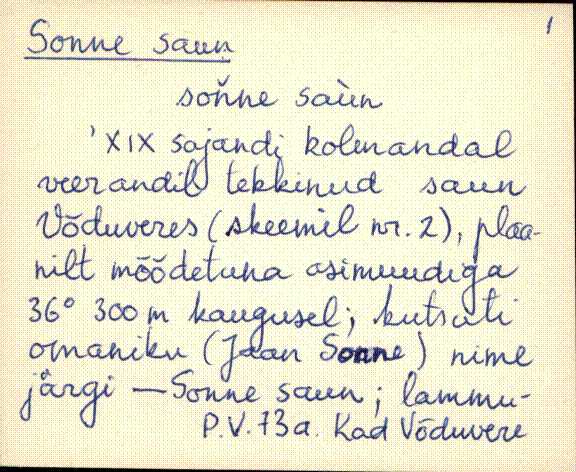 1
Sonne saun
soňne saùn
'XIX sajandi kolmandal
veerandil tekkinud saun
Võduveres (skeemil nr. 2), plaa-
nilt mõõdetuna asimuudiga
36° 300 m kaugusel; kutsuti
omaniku (Jaan Sonne) nime
järgi — Sonne saun; lammu-
P.V. 73 a. Kad Võduvere